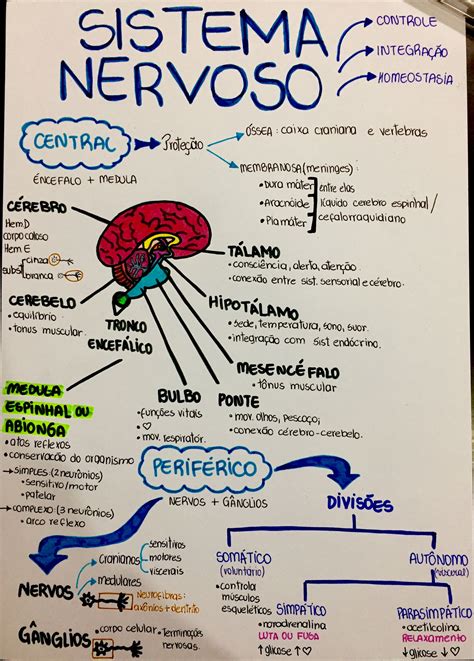 SISTEMA
NERVOSO
CONTROLE
INTEGRAÇÃO
HOMEOSTASIA
CENTRAL
Proteção
ÓSSEA: caixa craniana e vértebras
ENCÉFALO + MEDULA
MEMBRANOSA (meninges):
• Dura máter
• Aracnóide
• Pia máter
entre elas
líquido cérebro espinhal/
cefalorraquidiano
CÉREBRO
Hem.D
corpo caloso
Hem.E
subst
cinza
branca
CEREBELO
• equilíbrio
• tonus muscular.
TRONCO
ENCEFÁLICO
TÁLAMO
• consciência, alerta, atenção.
• conexão entre sist. sensorial e cérebro.
HIPOTÁLAMO
• sede, temperatura, sono, suor.
• integração com sist endócrino.
MESENCÉFALO
• tônus muscular
PONTE
• mov. olhos, pescoço;
• conexão cérebro-cerebelo.
BULBO
• funções vitais
• ♡
• mov. respiratór.
MEDULA
ESPINHAL OU
ABIONGA
• atos reflexos
• conservação do organismo
→ SIMPLES (2 neurônios)
• sensitivo/motor
• patelar
→ COMPLEXO (3 neurônios)
• arco reflexo
PERIFÉRICO
NERVOS + GÂNGLIOS
NERVOS
Cranianos
sensitivos
motores
viscerais
medulares
Neurofibras:
axônios + dentrio
GÂNGLIOS
• corpo celular
• Terminações
nervosas.
DIVISÕES
SOMÁTICO
(voluntário)
• controla
músculos
esqueléticos
AUTÔNOMO
(visceral)
SIMPÁTICO
• noradrenalina
LUTA OU FUGA
↑ glicose ↑ ♡
PARASIMPÁTICO
• acetilcolina
RELAXAMENTO
↓ glicose ↓ ♡